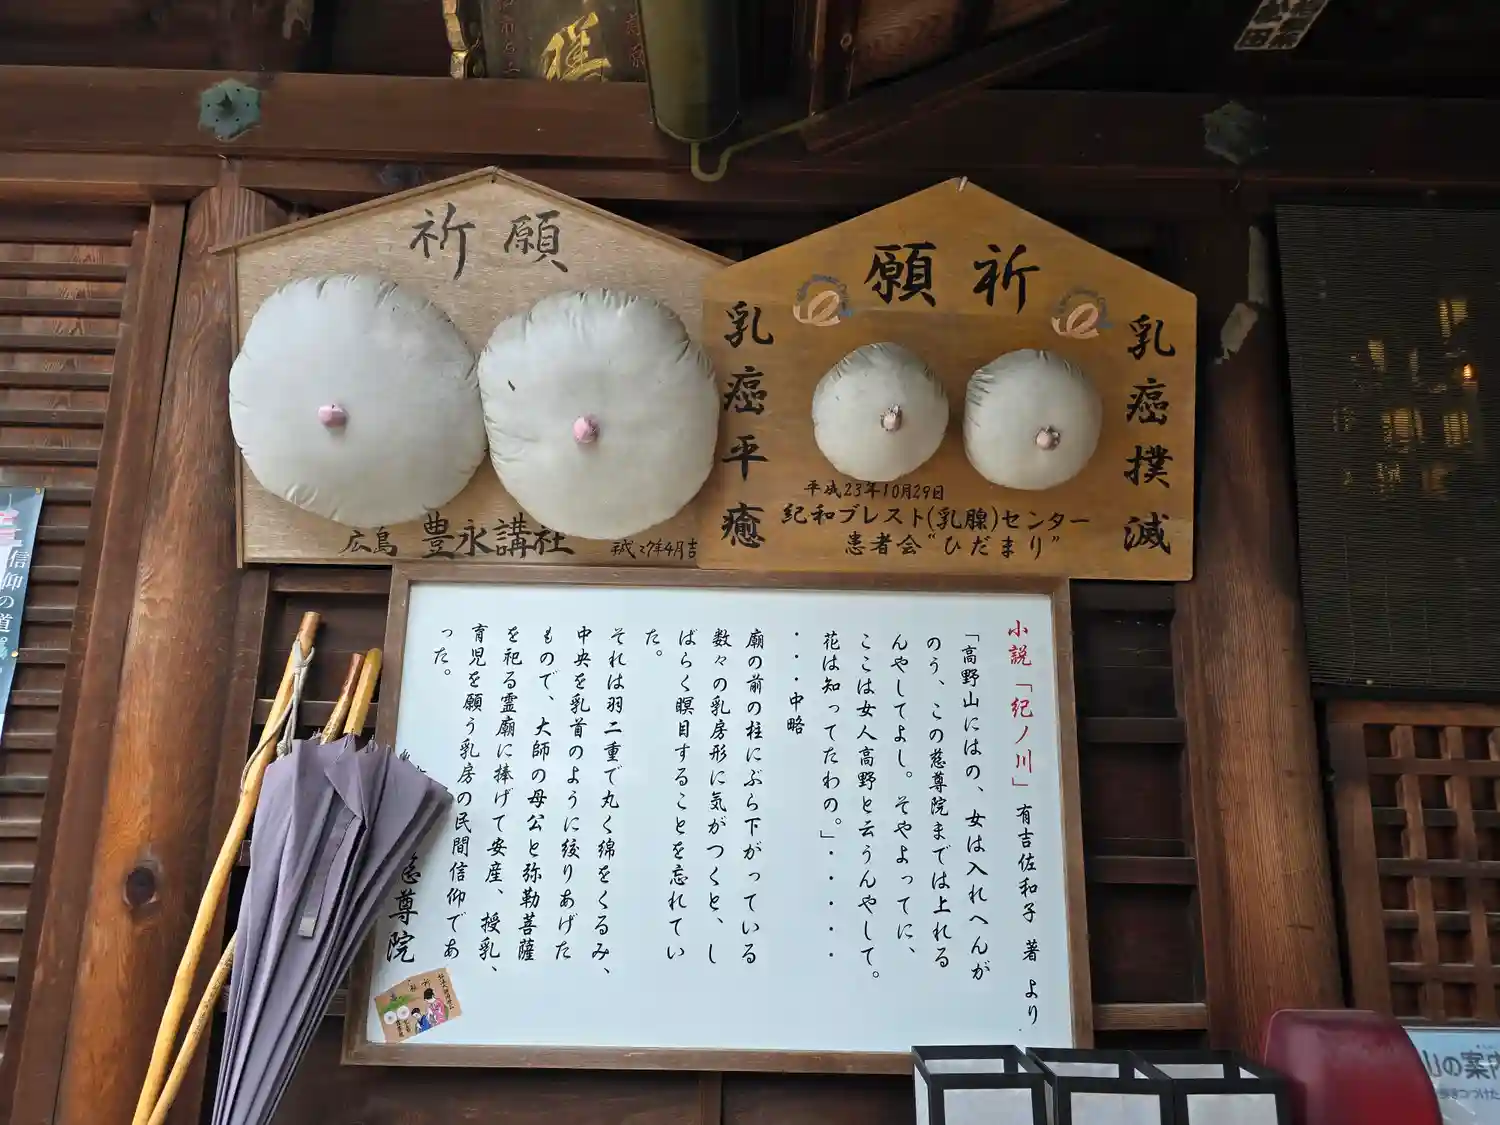 祈願
広島 豊永講社
平成27年4月吉
願祈
乳癌撲滅
乳癌平癒
平成23年10月29日
紀和ブレスト(乳腺)センター
患者会“ひだまり”
小説「紀ノ川」 有吉佐和子 著 より
「高野山にはの、女は入れへんが
のう、この慈尊院までは上れる
んやしてよし。そやよってに、
ここは女人高野と云うんやして。
花は知ってたわの。」・・・・・
・・・中略
廟の前の柱にぶら下がっている
数々の乳房形に気がつくと、し
ばらく瞑目することを忘れてい
た。
それは羽二重で丸く綿をくるみ、
中央を乳首のように絞りあげた
もので、大師の母公と弥勒菩薩
を祀る霊廟に捧げて安産、授乳、
育児を願う乳房の民間信仰であ
った。
慈尊院
信仰の道
山の案内